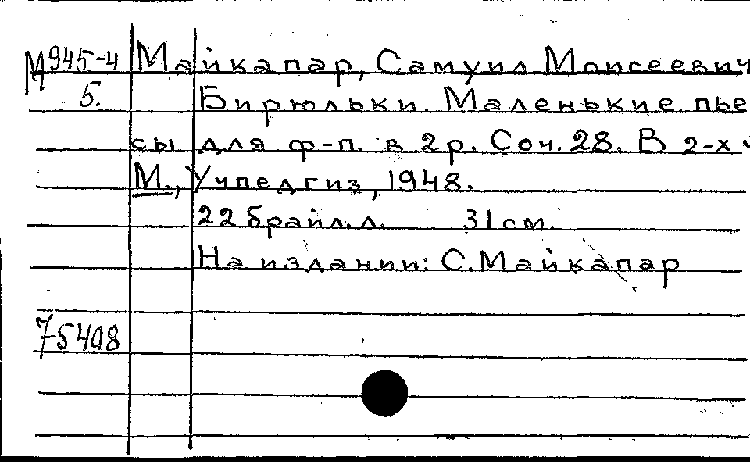 М945-4 Майкапар, Самуил Моисеевич
5. Бирюльки. Маленькие пье
сы для ф-п. в 2 р. Соч. 28. В 2-х
М., Учпедгиз, 1948.
22 брайл. л. 31 см.
На издании: С. Майкапар
75408